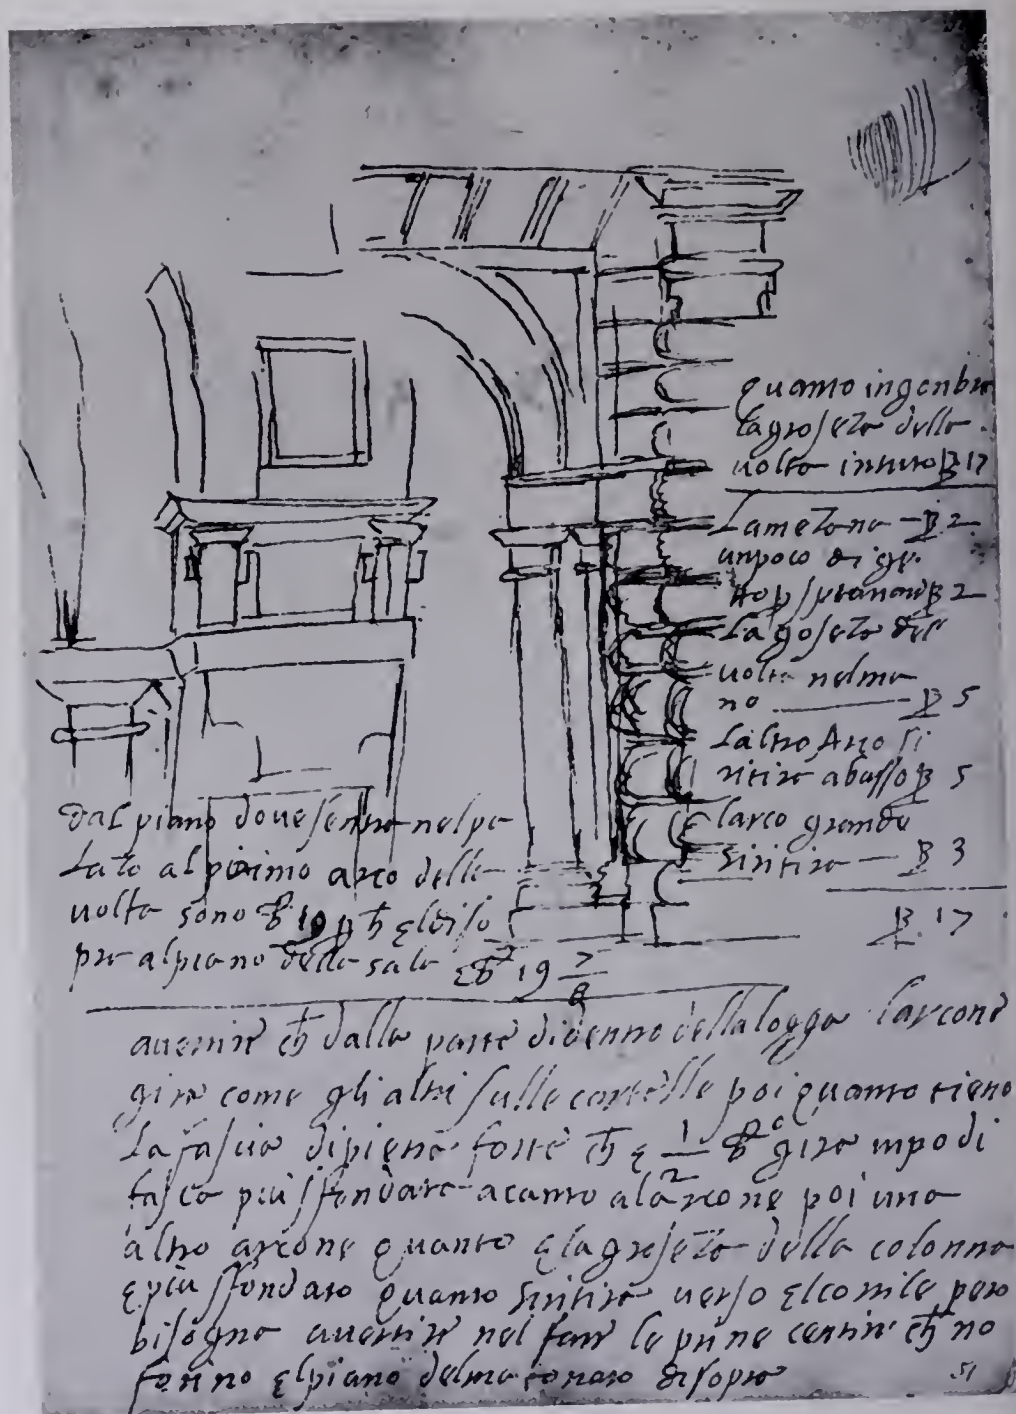 quanto ingonbra
la groseza della
uolta intuto B 17
Lamezana — B 2
unpoco di
B 2
La goseza del
uolta nelme
no — B 5
Laltro Arco si
ritira abasso B 5
larco grande
siritira — B 3
B. 17
Dal piano doue sentra nelpa
lazo alprimo arco della
uolta sono 19
pra alpiano della sala 19 7/8
auertire ch dalla parte didentro dellalogga larcone
gira come gli altri sulle poi quanto tiene
La fascia dipietra forte ch è 1/2 gira unpo di
fasca piu sfondata acanto alarcone poi uno
altro arcone quanto è la groseza della colonna
è piu sfondato quanto siritira uerso elcortile pero
bisogna auertire nel fare le prime centine ch no
elpiano delmatonato disopra
51